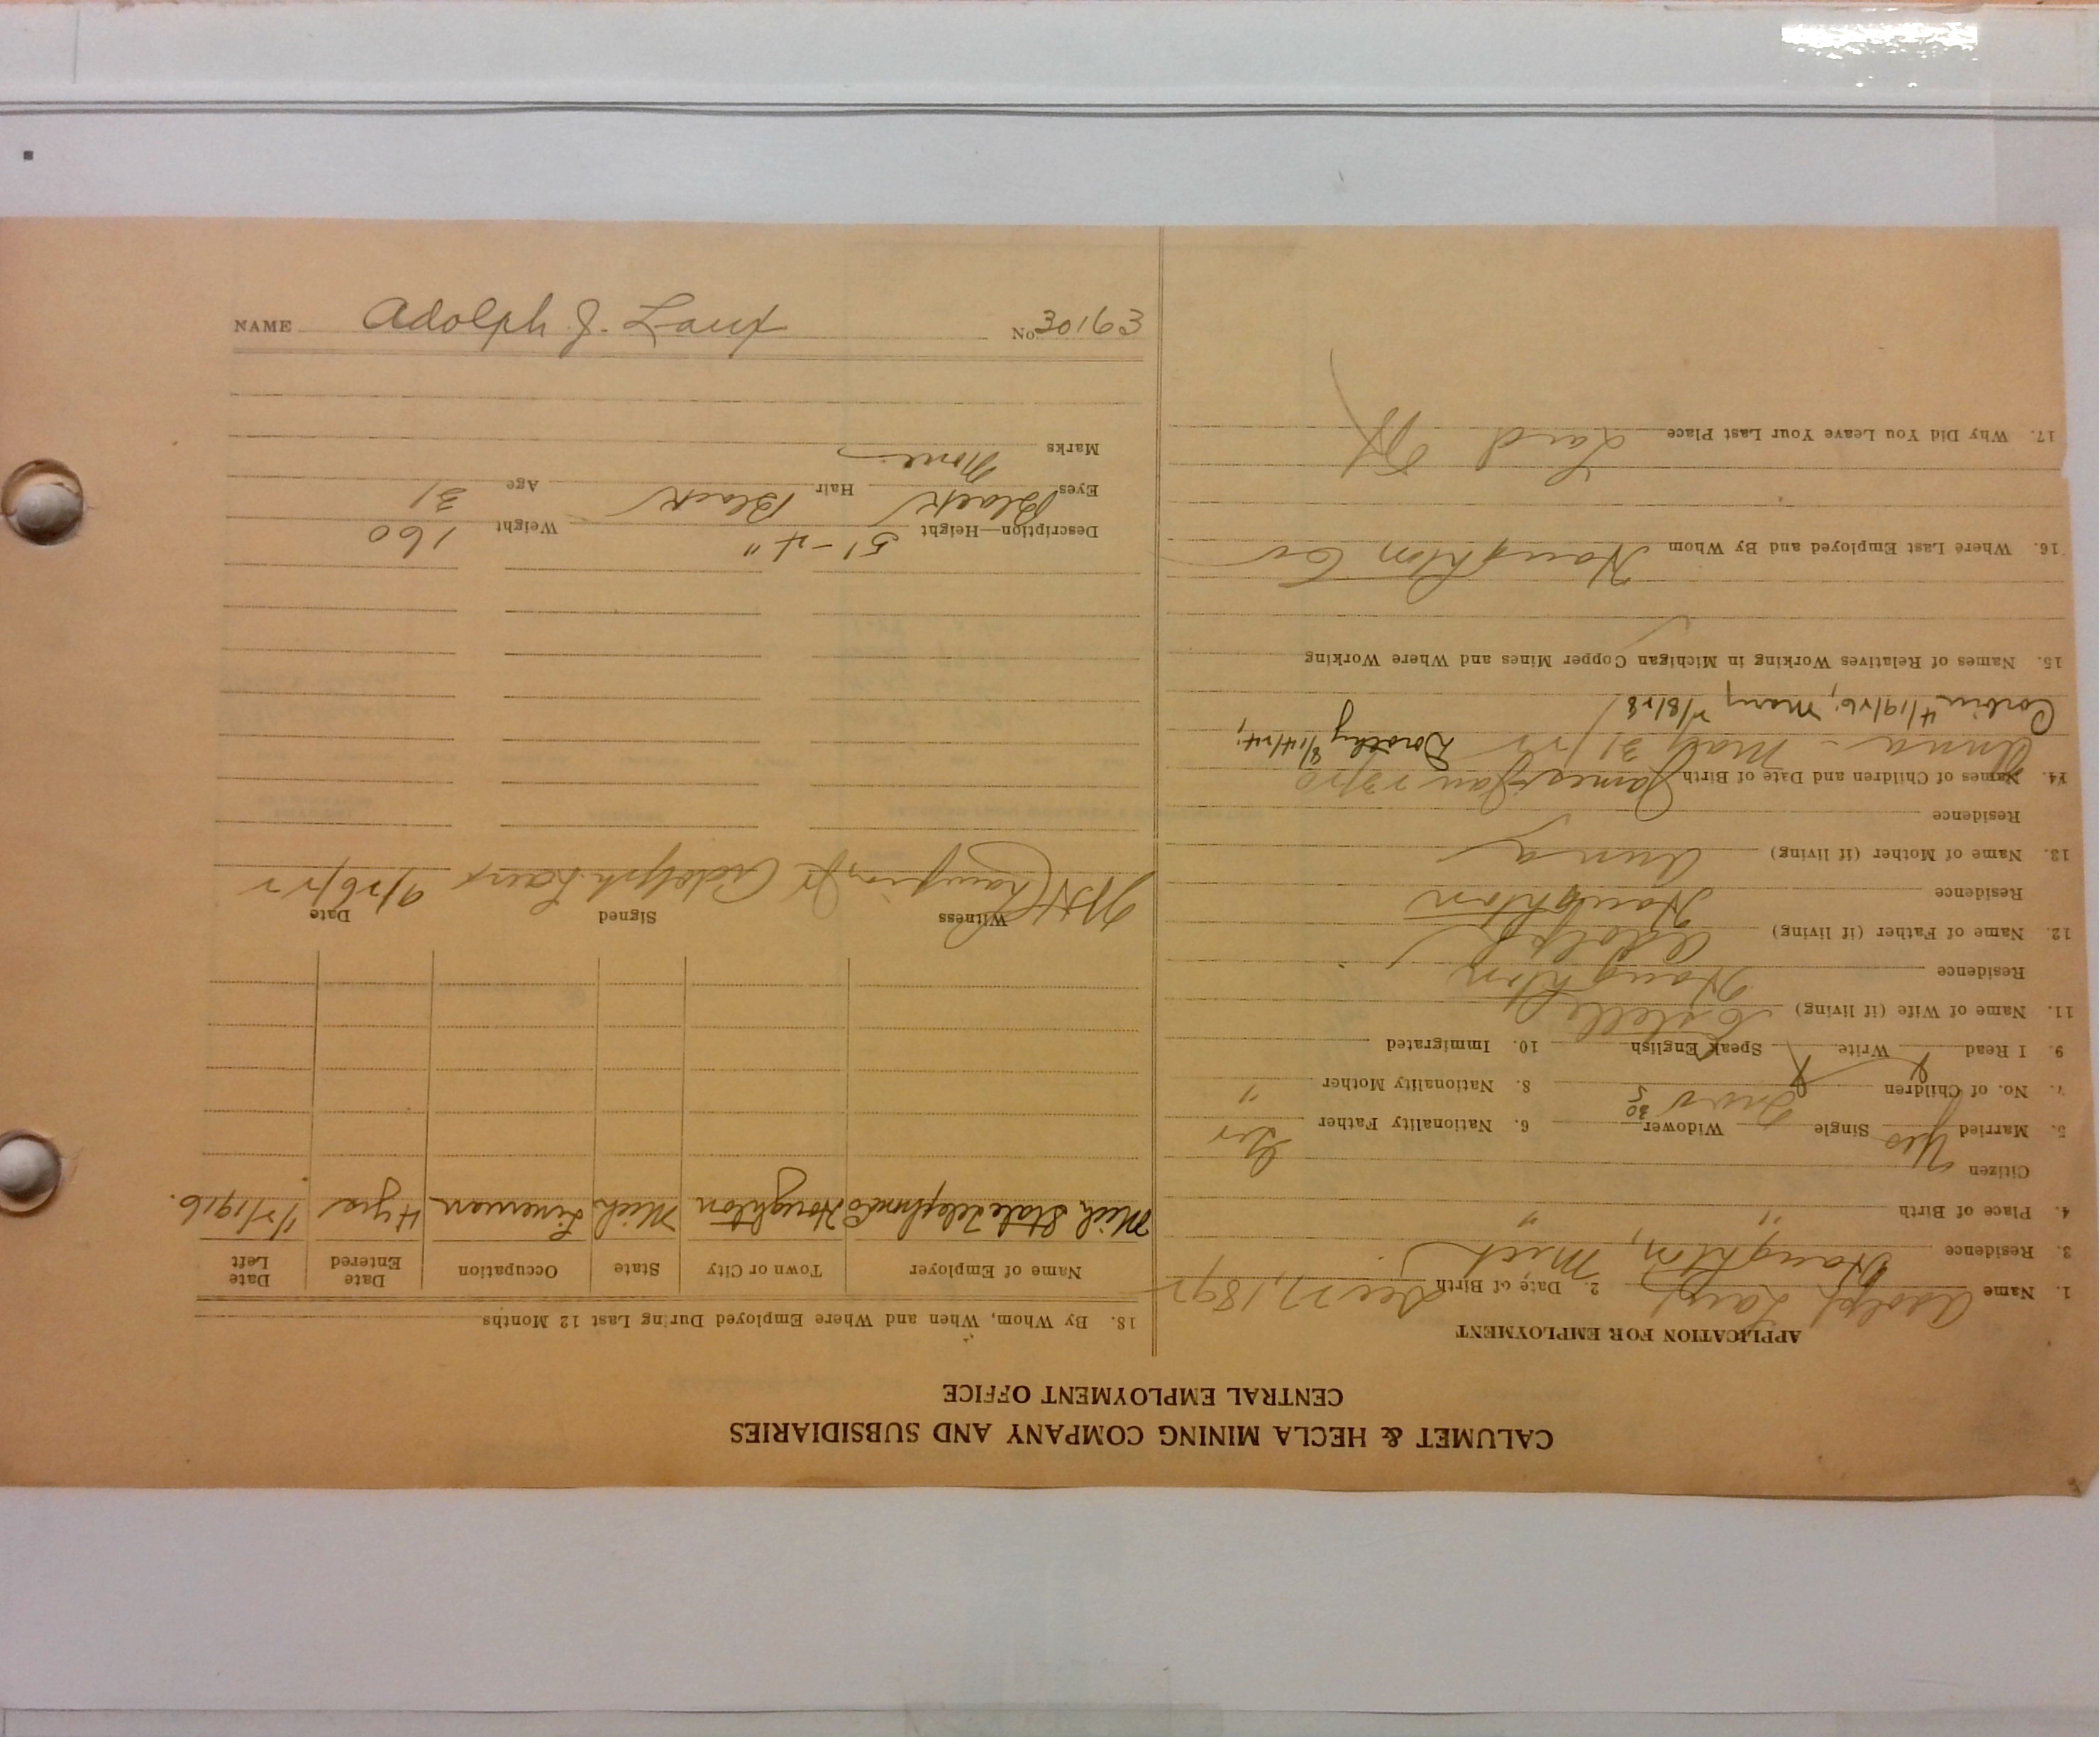 CALUMET & HECLA MINING COMPANY AND SUBSIDIARIES
CENTRAL EMPLOYMENT OFFICE
APPLICATION FOR EMPLOYMENT
1. Name Adolph Laux 2. Date of Birth Dec 27, 1892
3. Residence Houghton, Mich
4. Place of Birth " "
Citizen
5. Married Yes Single Widower 6. Nationality Father Ger
7. No. of Children 8. Nationality Mother "
9. I Read Write Speak English 10. Immigrated
11. Name of Wife (if living) Estelle
Residence Houghton
12. Name of Father (if living) Adolph
Residence Houghton
13. Name of Mother (if living) Anna
Residence
14. Names of Children and Date of Birth James Jan 23/20
Anna - May 31/22 Dorothy 8/14/24;
4/19/26; Mary 2/8/28
15. Names of Relatives Working in Michigan Copper Mines and Where Working
16. Where Last Employed and By Whom Houghton Co
17. Why Did You Leave Your Last Place Laid Off
18. By Whom, When and Where Employed During Last 12 Months
Name of Employer Town or City State Occupation Date Entered Date Left
Mich State Telephone Co Houghton Mich Lineman 4 yrs 1/2/1916.
Witness Signed Date
Adolph Laux 9/26/22
Description—Height 5'-4" Weight 160
Eyes Black Hair Black Age 31
Marks None
NAME Adolph J. Laux No. 30163